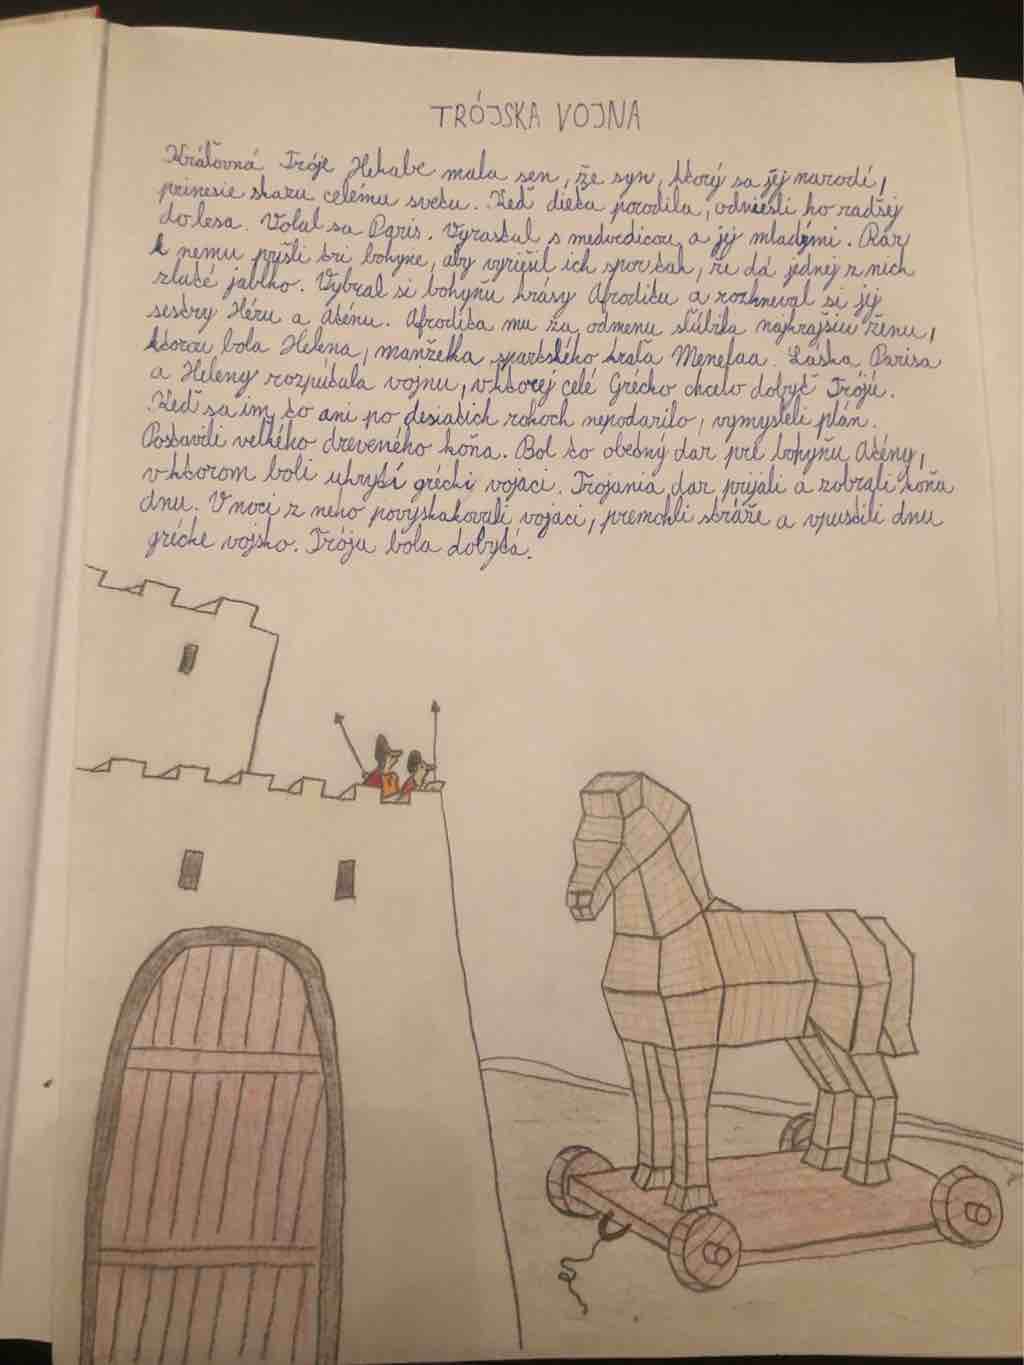 TRÓJSKA VOJNA
Kráľovná Tróje Hekabe mala sen, že syn, ktorý sa jej narodí,
prinesie skazu celému svetu. Keď dieťa porodila, odniesli ho radšej
do lesa. Volal sa Paris. Vyrastal s medvedicou a jej mladými. Raz
k nemu prišli tri bohyne, aby vyriešil ich spor tak, že dá jednej z nich
zlaté jablko. Vybral si bohyňu krásy Afroditu a rozhneval si jej
sestry Héru a Aténu. Afrodita mu za odmenu sľúbila najkrajšiu ženu,
ktorou bola Helena, manželka spartského kráľa Menelaa. Láska Parisa
a Heleny rozpútala vojnu, v ktorej celé Grécko chcelo dobyť Tróju.
Keď sa im to ani po desiatich rokoch nepodarilo, vymysleli plán.
Postavili veľkého dreveného koňa. Bol to obetný dar pre bohyňu Atény,
v ktorom boli ukrytí grécki vojaci. Trójania dar prijali a zobrali koňa
dnu. V noci z neho povyskakovali vojaci, premohli stráže a vpustili dnu
grécke vojsko. Trója bola dobytá.